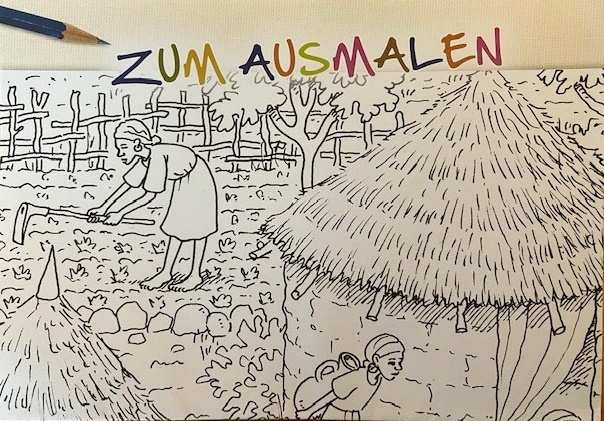 ZUM AUSMALEN